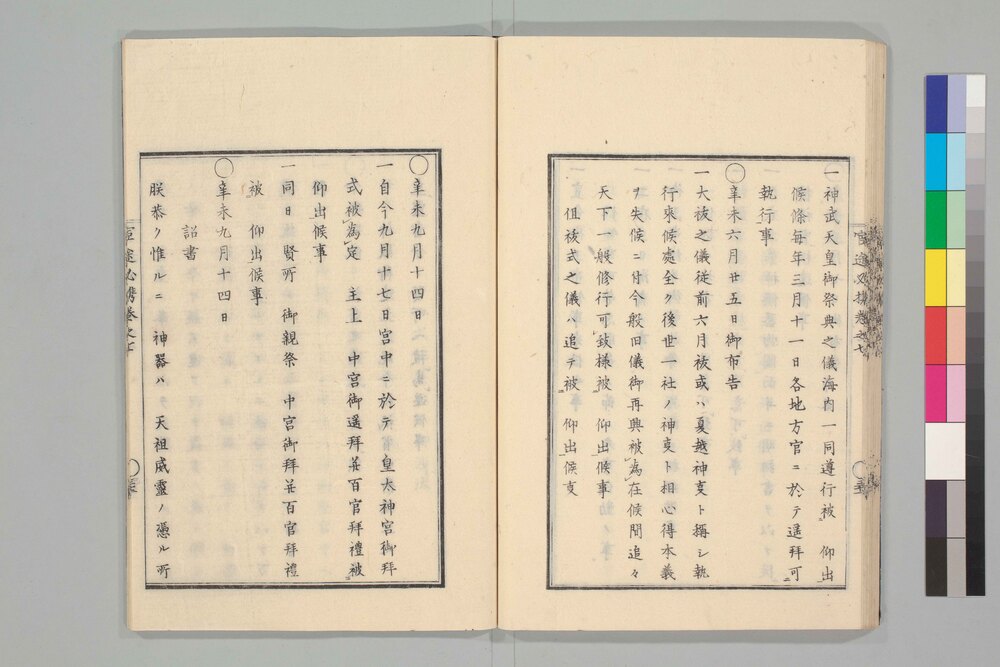 一神武天皇御祭典之儀海内一同遵行被　仰出
候條毎年三月十一日各地方官ニ於テ遥拜可
執行事
○辛未六月廿五日御布告
一大祓之儀従前六月祓或ハ夏越神叓ト稱シ執
行來候處全ク後世一社ノ神叓ト相心得本義
ヲ失候ニ付今般旧儀御再興被為在候間追々
天下一般修行可致様被　仰出候事
但祓式之儀ハ追テ被　仰出候叓
○辛未九月十四日
一自今九月十七日宮中ニ於テ　皇太神宮御拜
式被為定　主上　中宮御遥拜并百官拜禮被
仰出候事
一同日　賢所　御親祭　中宮御拜并百官拜禮
被　仰出候事
○辛未九月十四日
詔書
朕恭ク惟ルニ　神器ハ　天祖威靈ノ憑ル所